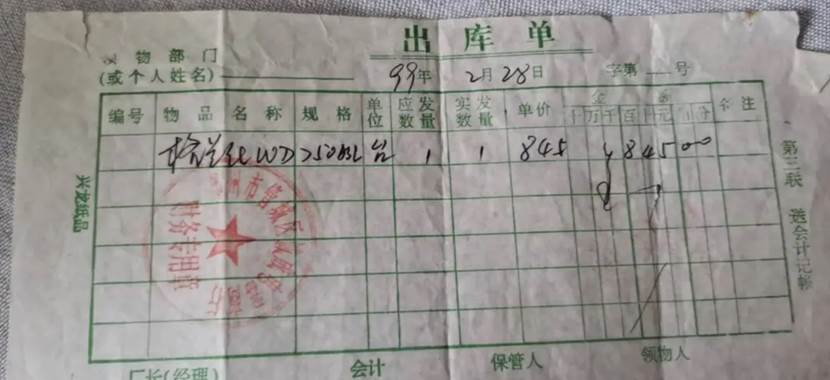 出库单
物部门
(或个人姓名) 99年 2月28日 字第 号
编号 物品名称 规格 单位 应发数量 实发数量 单价 金额 备注
十万千百十元角分
格兰仕WD750BSL 台 1 1 845 ¥84500
兴龙纸品
第三联 送会计记帐
财务专用章
厂长(经理) 会计 保管人 领物人